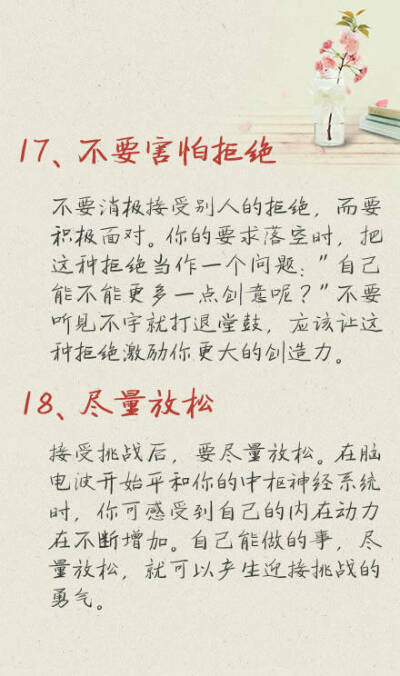 17、不要害怕拒绝
不要消极接受别人的拒绝，而要
积极面对。你的要求落空时，把
这种拒绝当作一个问题：”自己
能不能更多一点创意呢？”不要
听见不字就打退堂鼓，应该让这
种拒绝激励你更大的创造力。
18、尽量放松
接受挑战后，要尽量放松。在脑
电波开始平和你的中枢神经系统
时，你可感受到自己的内在动力
在不断增加。自己能做的事，尽
量放松，就可以产生迎接挑战的
勇气。